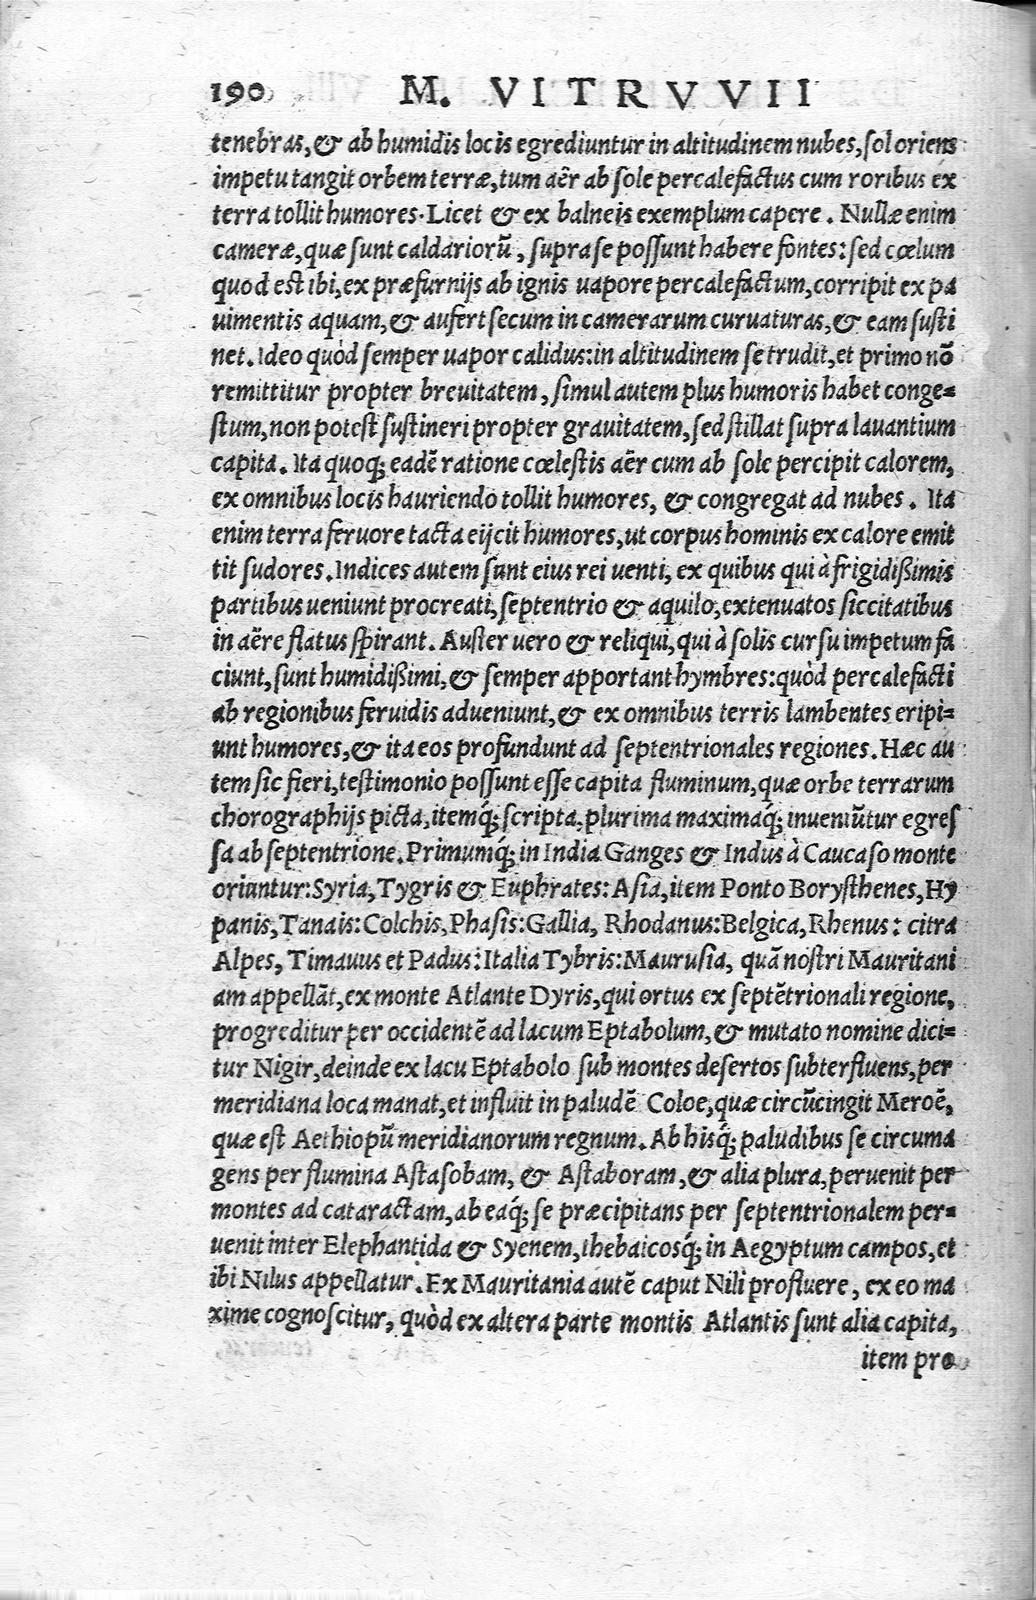 190 M. VITRVVII
tenebras, & ab humidis locis egrediuntur in altitudinem nubes, sol oriens
impetu tangit orbem terræ, tum aër ab sole percalefactus cum roribus ex
terra tollit humores. Licet & ex balneis exemplum capere. Nullæ enim
cameræ, quæ sunt caldariorū, supra se possunt habere fontes: sed cœlum
quod est ibi, ex præfurnijs ab ignis uapore percalefactum, corripit ex pa
uimentis aquam, & aufert secum in camerarum curuaturas, & eam susti
net. Ideo quòd semper uapor calidus: in altitudinem se trudit, et primo nō
remittitur propter breuitatem, simul autem plus humoris habet conge=
stum, non potest sustineri propter grauitatem, sed stillat supra lauantium
capita. Ita quoq; eadē ratione cœlestis aër cum ab sole percipit calorem,
ex omnibus locis hauriendo tollit humores, & congregat ad nubes. Ita
enim terra feruore tacta eijcit humores, ut corpus hominis ex calore emit
tit sudores. Indices autem sunt eius rei uenti, ex quibus qui à frigidißimis
partibus ueniunt procreati, septentrio & aquilo, extenuatos siccitatibus
in aëre flatus spirant. Auster uero & reliqui, qui à solis cursu impetum fa
ciunt, sunt humidißimi, & semper apportant hymbres: quòd percalefacti
ab regionibus feruidis adueniunt, & ex omnibus terris lambentes eripi=
unt humores, & ita eos profundunt ad septentrionales regiones. Hæc au
tem sic fieri, testimonio possunt esse capita fluminum, quæ orbe terrarum
chorographijs picta, itemq́; scripta, plurima maximaq́; inueniūtur egres
sa ab septentrione. Primumq́; in India Ganges & Indus à Caucaso monte
oriuntur: Syria, Tygris & Euphrates: Asia, item Ponto Borysthenes, Hy
panis, Tanais: Colchis, Phasis: Gallia, Rhodanus: Belgica, Rhenus: citra
Alpes, Timauus et Padus: Italia Tybris: Maurusia, quā nostri Mauritani
am appellāt, ex monte Atlante Dyris, qui ortus ex septētrionali regione,
progreditur per occidentē ad lacum Eptabolum, & mutato nomine dici=
tur Nigir, deinde ex lacu Eptabolo sub montes desertos subterfluens, per
meridiana loca manat, et influit in paludē Coloe, quæ circūcingit Meroē,
quæ est Aethiopū meridianorum regnum. Ab hisq́; paludibus se circuma
gens per flumina Astasobam, & Astaboram, & alia plura, peruenit per
montes ad cataractam, ab eaq́; se præcipitans per septentrionalem per=
uenit inter Elephantida & Syenem, Thebaicosq́; in Aegyptum campos, et
ibi Nilus appellatur. Ex Mauritania autē caput Nili profluere, ex eo ma
xime cognoscitur, quòd ex altera parte montis Atlantis sunt alia capita,
item pro